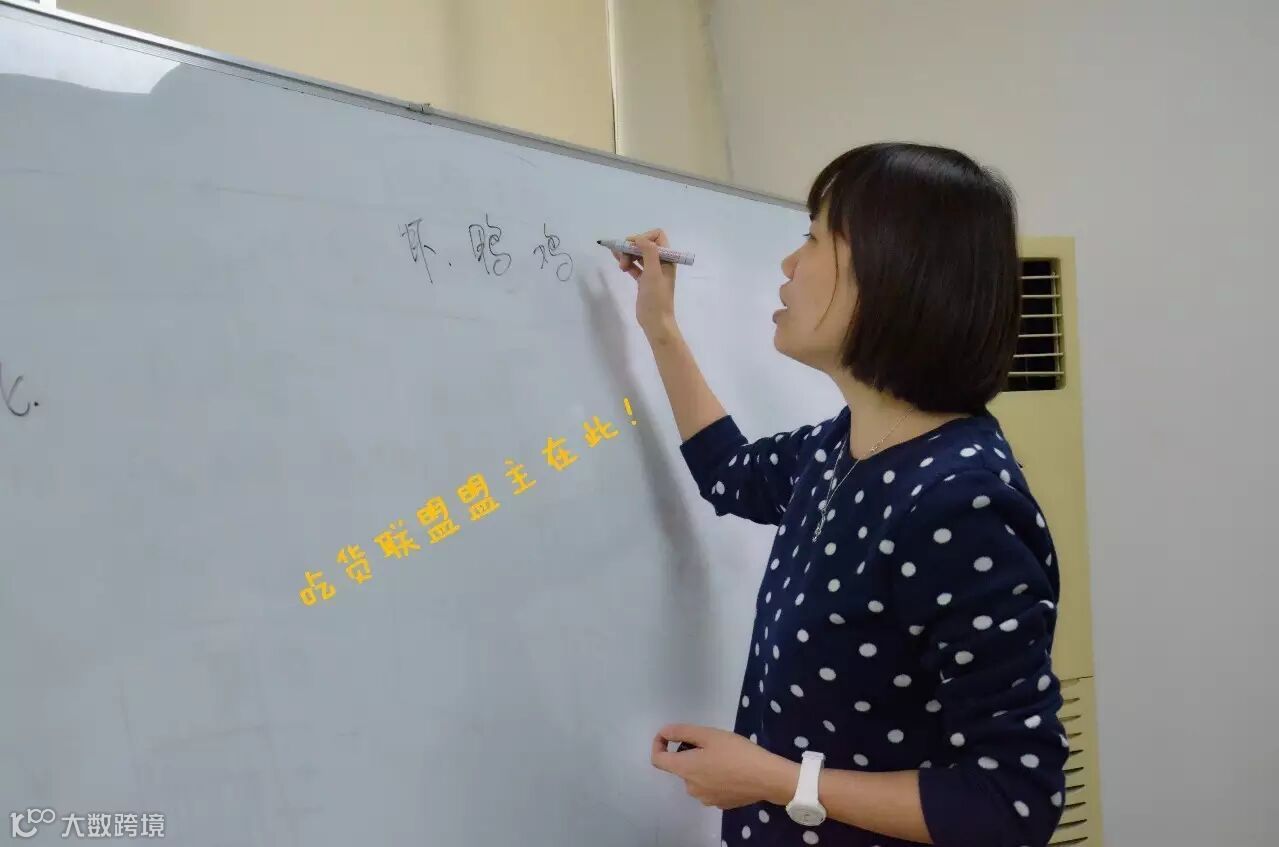 鸭 鸡
吃货联盟盟主在此!
大数跨境